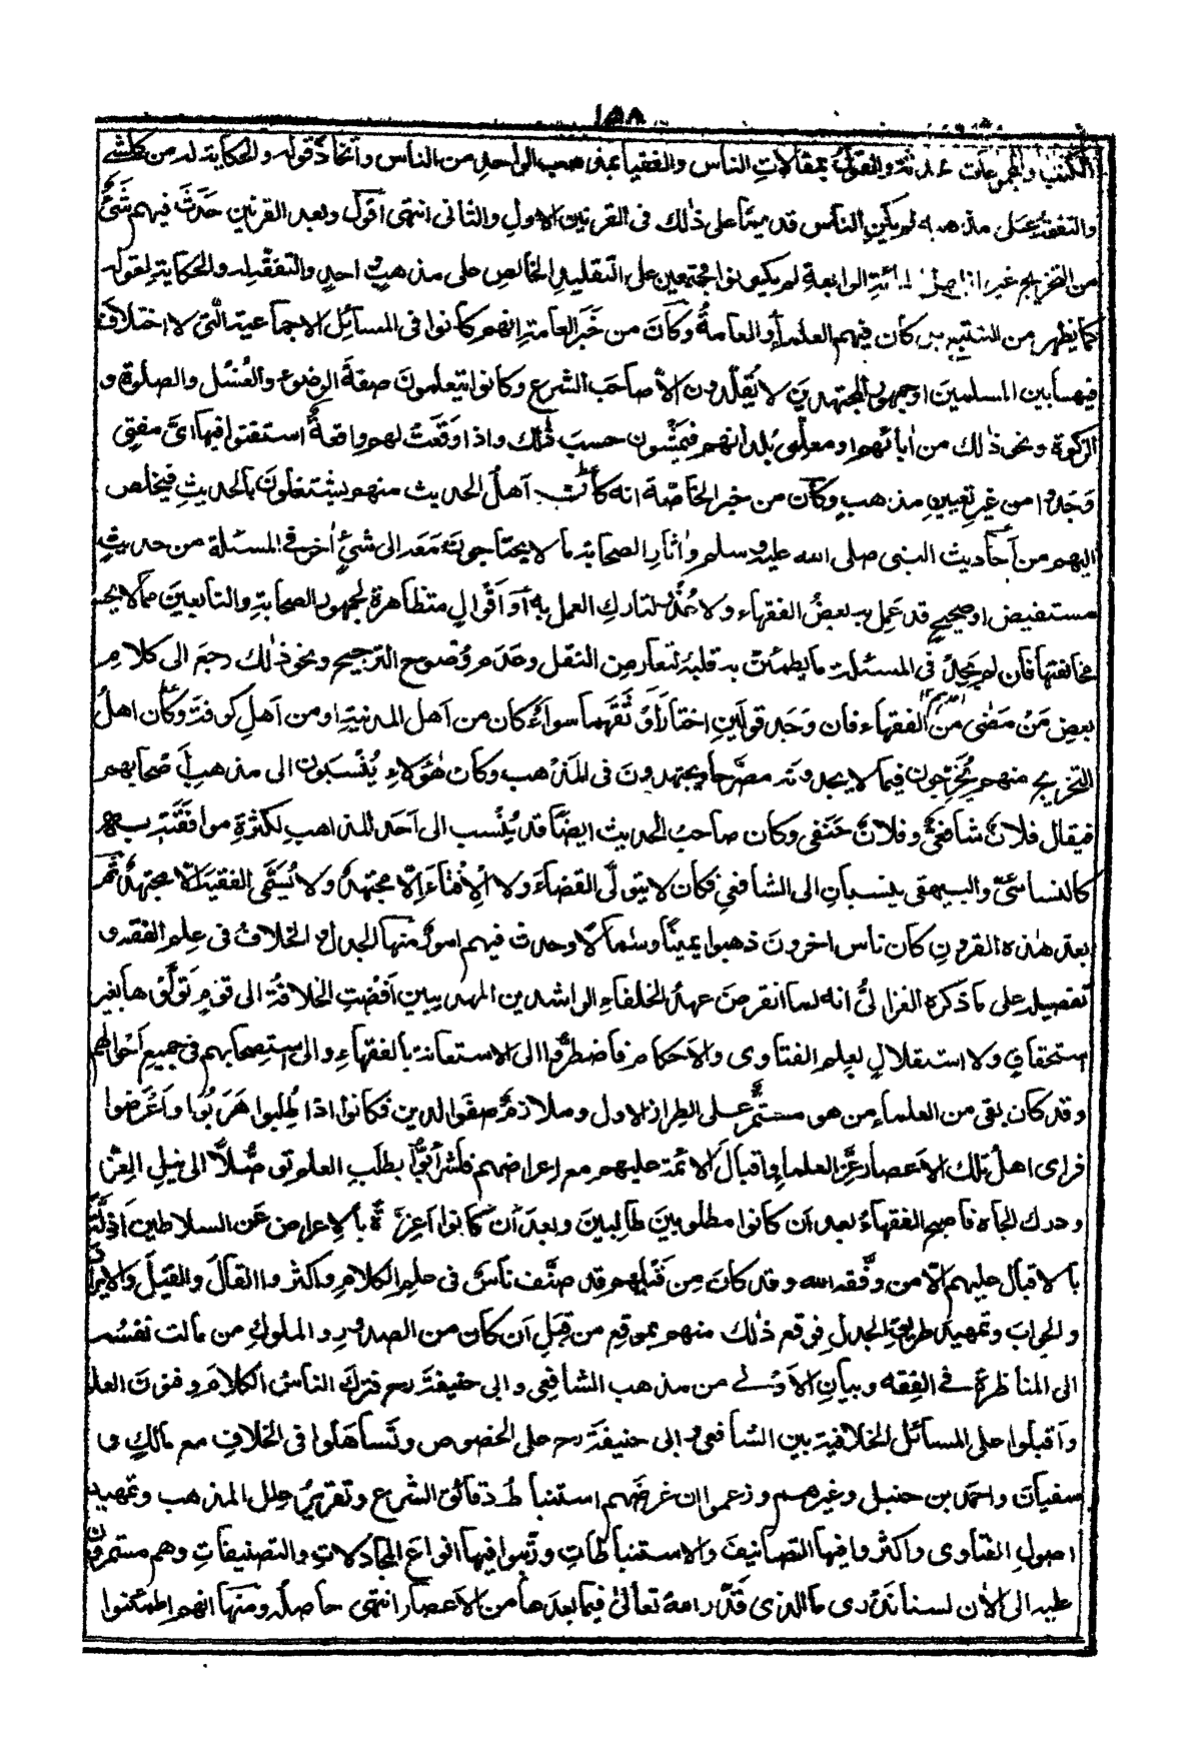 ١٥٨
الكتب والمجموعات محدثة والقول بمقالات الناس والفتيا بمذهب الواحد من الناس واتخاذ قوله والحكاية له من كل شئ
والتفقه على مذهبه لم يكن الناس قديما على ذلك فى القرنين الاول والثانى انتهى اقول وبعد القرنين حدث فيهم شئ
من التخريج غير ان اهل المائة الرابعة لم يكونوا مجتمعين على التقليد الخالص على مذهب احد والتفقه له والحكاية لقوله
كما يظهر من التتبع بل كان فيهم العلماء والعامة وكان من خبر العامة انهم كانوا فى المسائل الاجماعية التى لا اختلاف
فيها بين المسلمين او جمهور المجتهدين لا يقلدون الا صاحب الشرع وكانوا يتعلمون صفة الوضوء والغسل والصلوة و
الزكوة ونحو ذلك من اٰبائهم او معلمى بلدانهم فيمشون حسب ذلك واذا وقعت لهم واقعة استفتوا فيها اىّ مفتى
وجدوا من غير تعيين مذهب وكان من خبر الخاصة انه كان اهل الحديث منهم يشتغلون بالحديث فيخلص
اليهم من احاديث النبى صلى الله عليه وسلم واٰثار الصحابة ما لا يحتاجون معه الى شئ اٰخر فى المسئلة من حديث
مستفيض او صحيح قد عمل به بعض الفقهاء ولا عذر لتارك العمل به او اقوال متظاهرة لجمهور الصحابة والتابعين مما لا يحسن
مخالفتها فان لم يجد فى المسئلة ما يطمئن به قلبه لتعارض النقل وعدم وضوح الترجيح ونحو ذلك رجع الى كلام
بعض من مضى من الفقهاء فان وجد قولين اختار اوثقهما سواء كان من اهل المدينة او من اهل كوفة وكان اهل
التخريج منهم يخرجون فيما لا يجدونه مصرحا ويجتهدون فى المذهب وكان هؤلاء ينسبون الى مذهب اصحابهم
فيقال فلان شافعى وفلان حنفى وكان صاحب الحديث ايضا قد ينسب الى احد المذاهب لكثرة موافقته به
كالنسائى والبيهقى ينسبان الى الشافعى فكان لا يتولى القضاء ولا الافتاء الا مجتهد ولا يسمى الفقيه الا مجتهد ثم
بعد هذه القرون كان ناس اخرون ذهبوا يمينا وشمالا وحدث فيهم امور منها الجدل والخلاف فى علم الفقه و
تفصيله على ما ذكره الغزالى انه لما انقرض عهد الخلفاء الراشدين المهديين افضت الخلافة الى قوم تولوها بغير
استحقاق ولا استقلال بعلم الفتاوى والاحكام فاضطروا الى الاستعانة بالفقهاء والى استصحابهم فى جميع احوالهم
وقد كان بقى من العلماء من هو مستمر على الطراز الاول وملازم صفو الدين فكانوا اذا طلبوا هربوا واعرضوا
فراى اهل تلك الاعصار عز العلماء واقبال الائمة عليهم مع اعراضهم فاشرأبوا بطلب العلم توصلا الى نيل العز
ودرك الجاه فاصبح الفقهاء بعد ان كانوا مطلوبين طالبين وبعد ان كانوا اعزة بالاعراض عن السلاطين اذلة
بالاقبال عليهم الا من وفقه الله وقد كان من قبلهم قد صنف ناس فى علم الكلام واكثروا القال والقيل والايراد
والجواب وتمهيد طريق الجدل فوقع ذلك منهم بموقع من قبل ان كان من الصدور والملوك من مالت نفسه
الى المناظرة فى الفقه وبيان الاولى من مذهب الشافعى وابى حنيفة رح فترك الناس الكلام وفنون العلم
واقبلوا على المسائل الخلافية بين الشافعى وابى حنيفة رح على الخصوص وتساهلوا فى الخلاف مع مالك و
سفيان واحمد بن حنبل وغيرهم وزعموا ان غرضهم استنباط دقائق الشرع وتقرير علل المذهب وتمهيد
اصول الفتاوى واكثروا فيها التصانيف والاستنباطات ورتبوا فيها انواع المجادلات والتصنيفات وهم مستمرون
عليه الى الاٰن لسنا ندرى ما الذى قدر الله تعالى فيما بعدها من الاعصار انتهى حاصله ومنها انهم اطمئنوا